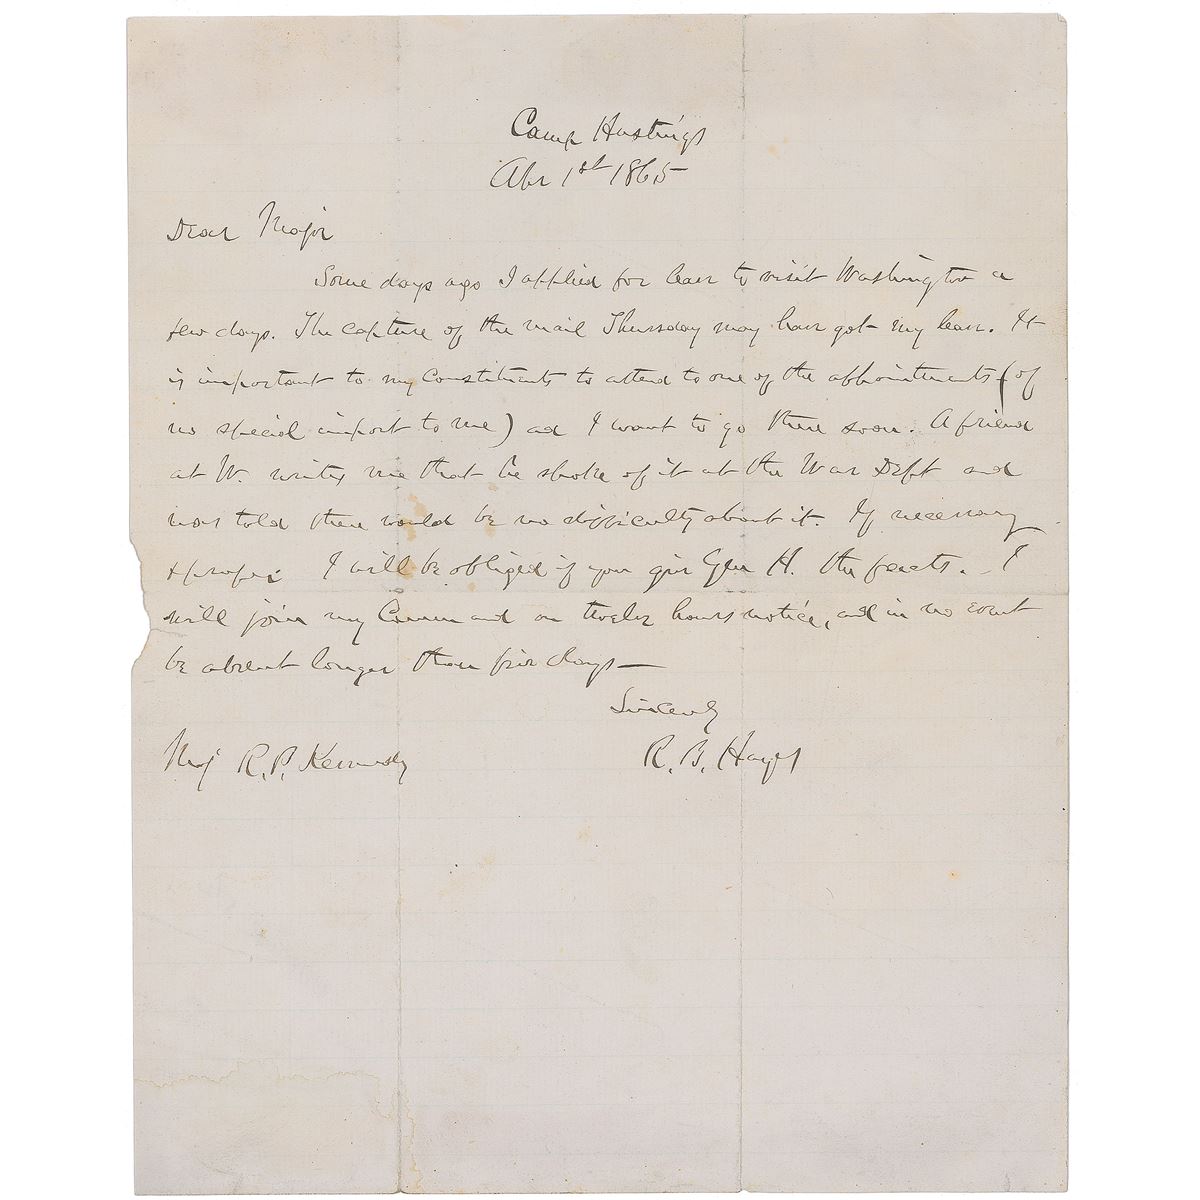 Camp Hastings
Apr 1st 1865
Dear Major
Some days ago I applied for leave to visit Washington a
few days. The capture of the mail Thursday may have got my leave. It
is important to my constituents to attend to one of the appointments (of
no special import to me) and I want to go there soon. A friend
at W. writes me that he spoke of it at the War Dept and
was told there would be no difficulty about it. If necessary
& proper I will be obliged if you give Gen H. the facts. I
will join my Command on twelve hours notice, and in no event
be absent longer than five days—
Sincerely
R. B. Hayes
Maj R. P. Kennedy